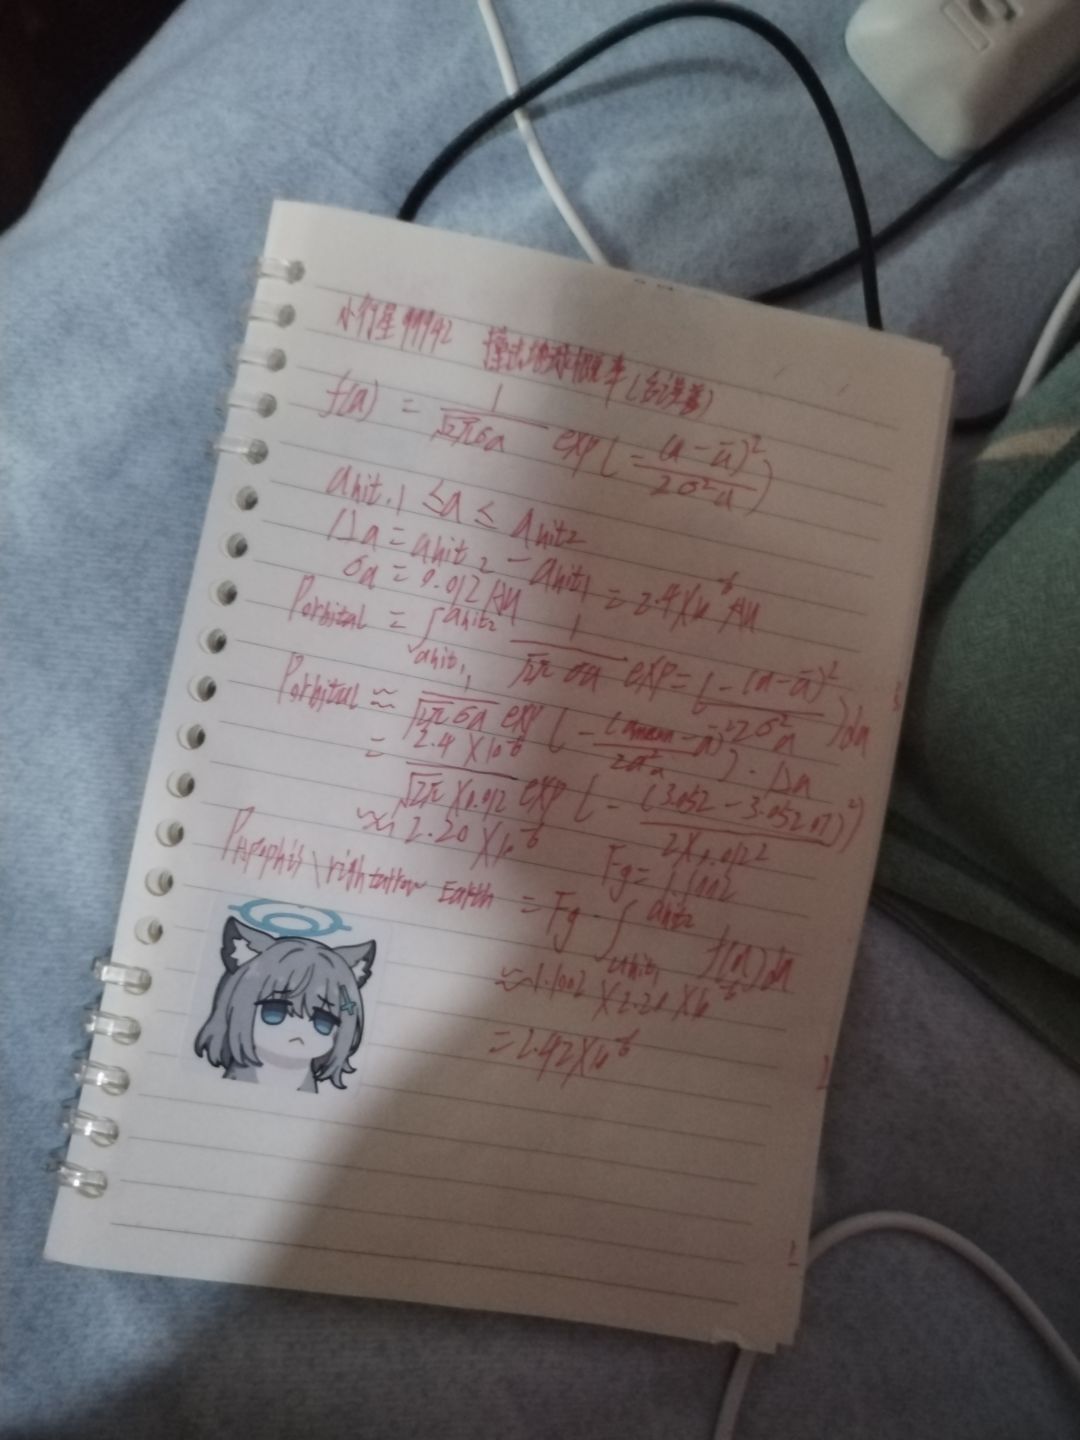 小行星 99942 撞击地球概率(含误差)
f(a) = 1/(√2π σa) exp(-(a-ā)²/(2σ²a))
ahit,1 ≤ a ≤ ahit2
Δa = ahit2 - ahit1 = 2.4×10⁻⁶ AU
σa = 0.012 AU
Porbital = ∫ahit1^ahit2 1/(√2π σa) exp=(-(a-ā)²/2σ²a)da
Porbital ≈ 1/(√2π σa) exp(-( -ā)²/2σ²a)·Δa
= 2.4×10⁻⁶/(√2π×0.012) exp(-(3.052-3.05207)²/(2×0.012²))
≈ 2.20×10⁻⁶ Fg = 1.1002
PApophis\rightarrow Earth = Fg·∫ahit1^ahit2 f(a)da
≈ 1.1002×2.20×10⁻⁶
= 2.42×10⁻⁶